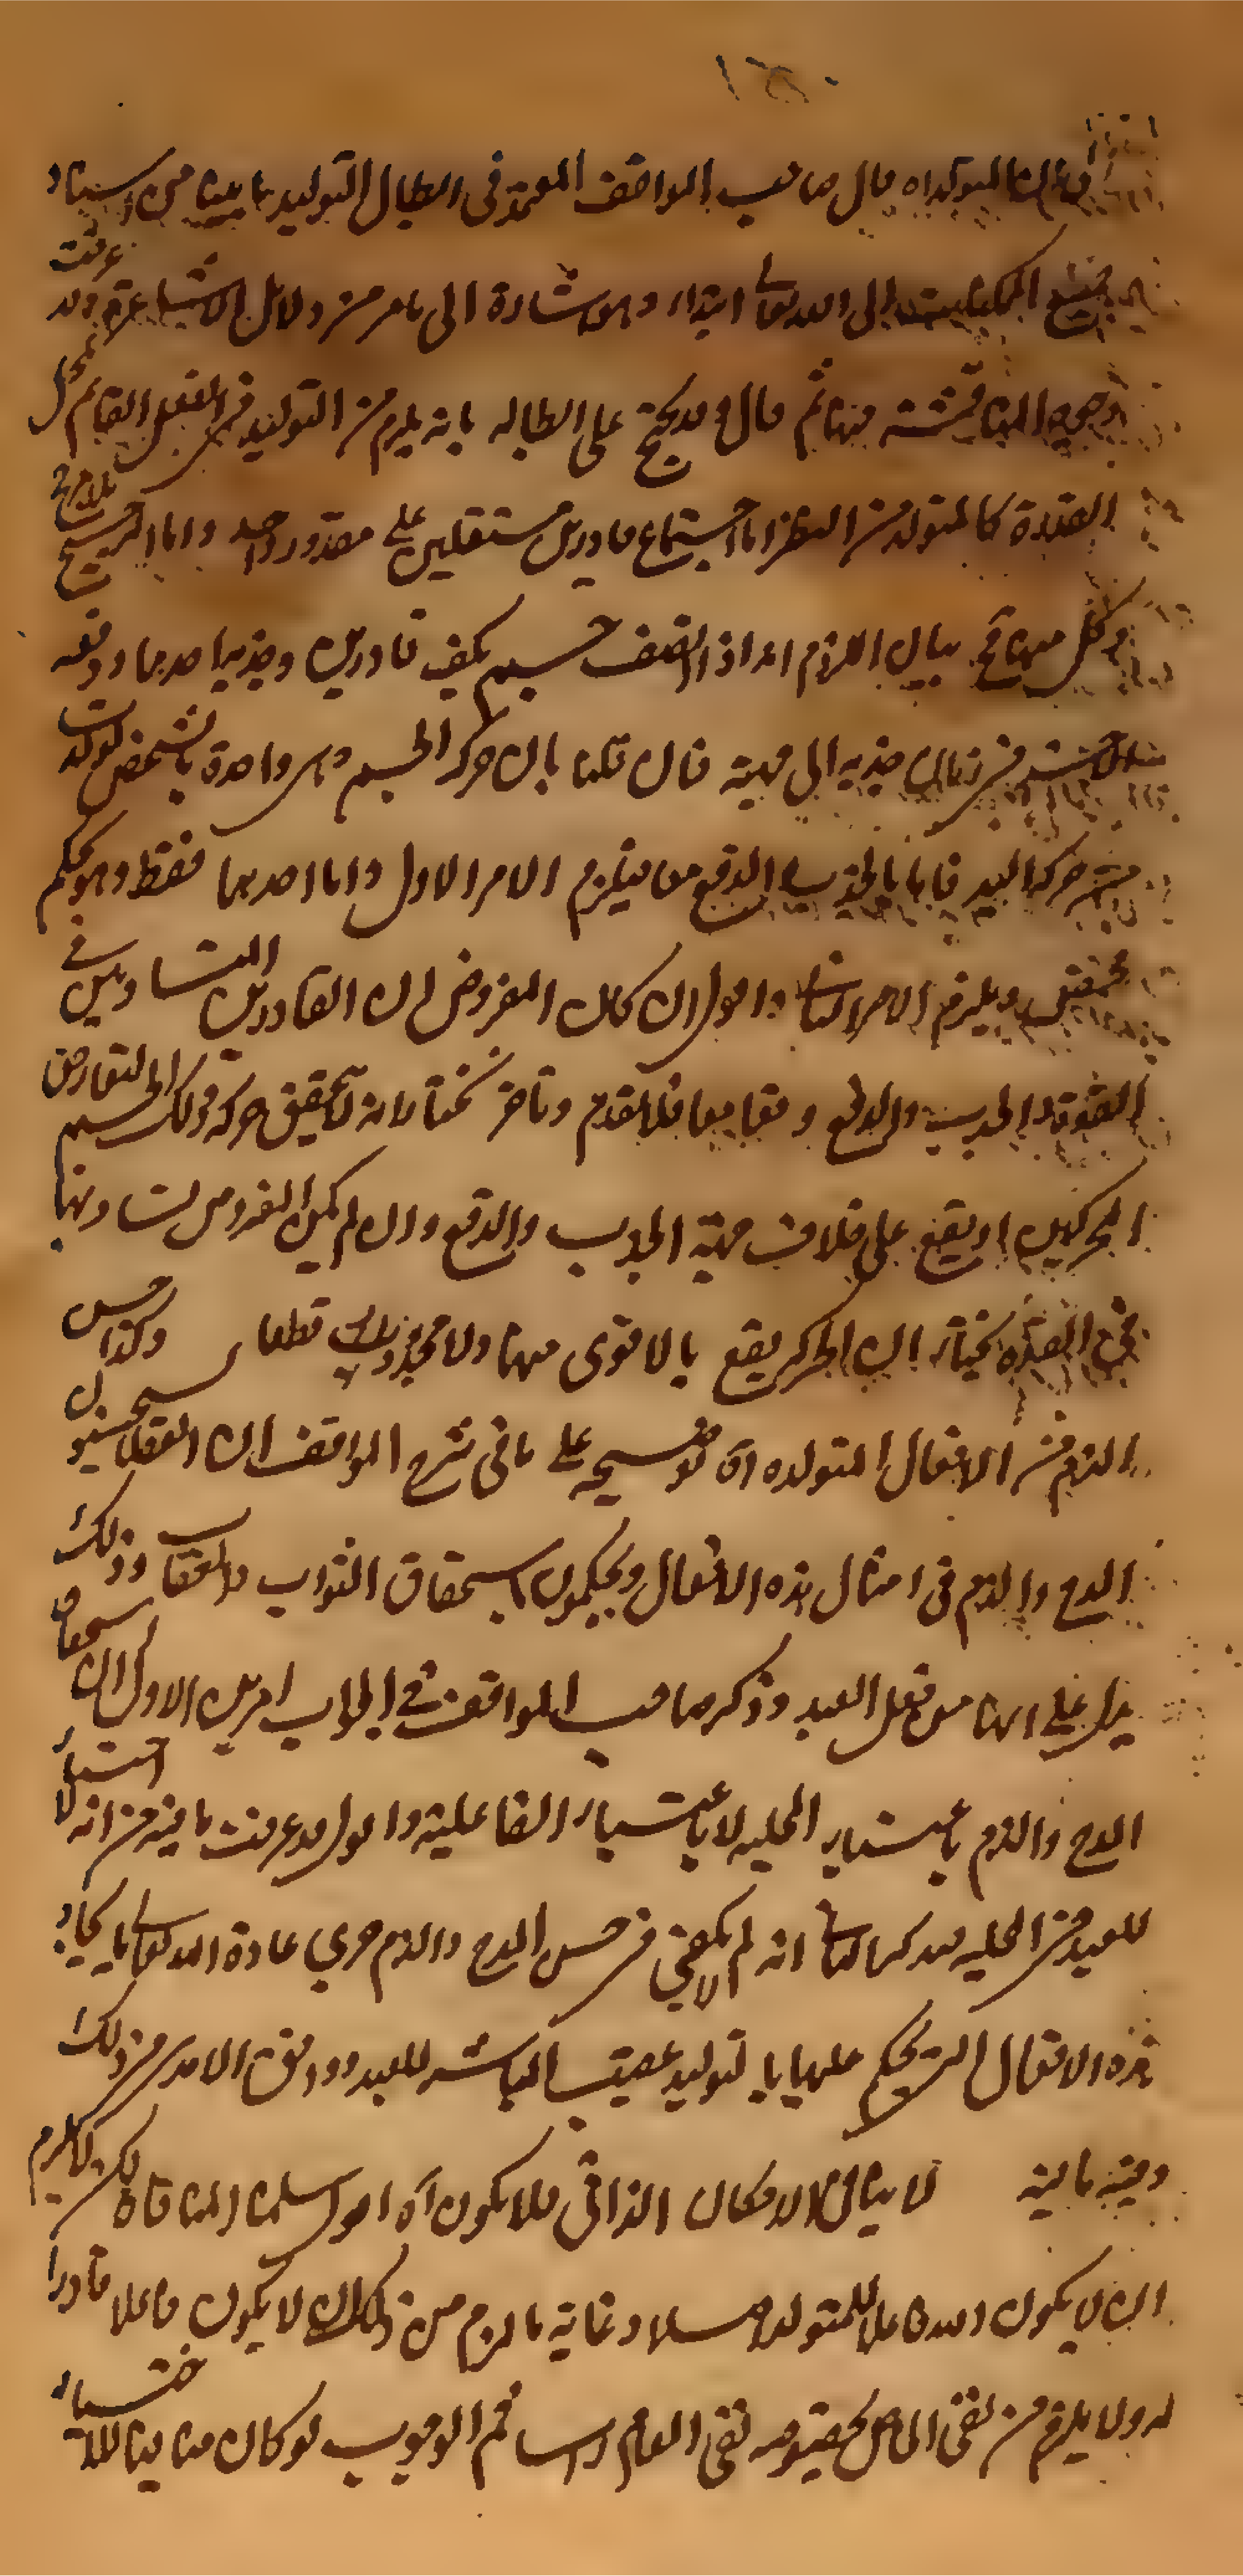 المتولد اه قال صاحب المواقف المعتمد في ابطال التوليد ما بينا من استناد
جميع الممكنات الى الله تعالى ابتداء وهو اشارة الى ما مر من دلائل الاشاعرة وقد عرفت
وجوه المناقشة فيها ثم قال وقد يحتج على ابطاله بانه يلزم من التوليد في الفعل القائم بمحل
القدرة كالمتولد من النظر اما اجتماع قادرين مستقلين على مقدور واحد واما الترجيح بلا مرجح
وكل منهما مح بيان اللزوم انه اذا التصق جسم بكف قادرين وجذبه احدهما ودفعه
الآخر في زمان جذبه الى جهته فان قلنا بان حركة الجسم وهي واحدة بالشخص تولدت
من حركة اليد فاما بالجذب والدفع معا فيلزم الامر الاول واما احدهما فقط وهو تحكم
محض ويلزم الامر الثاني واقول ان كان المفروض ان القادرين المتساويين في
القوة والجذب والدفع وقعا معا فلا تقدم وتاخر نختار انه لا يتحقق حركة ذلك الجسم لتعارض
المحركين او يقع على خلاف جهة الجذب والدفع وان لم يكن المفروض تساويهما
في القدرة نختار ان الحركة يقع بالاقوى منهما ولا محذور في ذلك قطعا وكذا حسن
الذم من الافعال المتولدة اه توضيحه على ما في شرح المواقف ان العقلاء يستحسنون
المدح والذم في امثال هذه الافعال ويحكمون باستحقاق الثواب والعقاب وذلك
يدل على انها من فعل العبد وذكر صاحب المواقف في الجواب امرين الاول ان استحقاق
المدح والذم باعتبار المحلية لا باعتبار الفاعلية واقول قد عرفت ما فيه من انه لا اختيار
للعبد في المحلية الثاني انه لم لا يكفي في حسن المدح والذم جري عادة الله تعالى بايجاد
هذه الافعال التي يحكم عليها بالتوليد عقيب المباشر للعبد
وفيه ما فيه لا ينافي الامكان الذاتي فلا يكون اه اقول سلمنا المنافاة لكن لا يلزم
ان لا يكون العبد فاعلا للمتولد اصلا وغاية ما لزم من ذلك ان لا يكون فاعلا قادرا
له ولا يلزم من نفي الخاص بخصوصه نفي العام راسا ثم الوجوب لو كان منافيا للاختيار